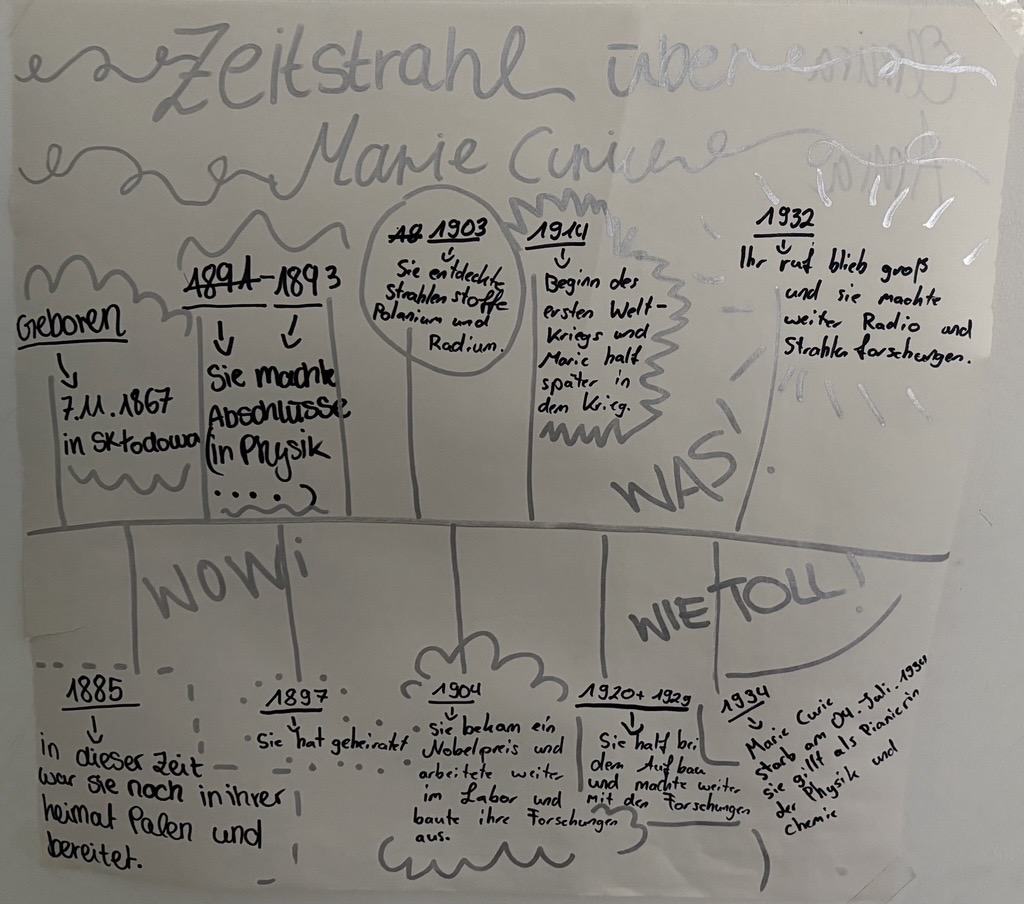 Zeitstrahl über
Marie Curie
Geboren
7.11.1867
in Skłodowa
1891-1893
Sie machte
Abschlüsse
in Physik
1903
Sie entdeckte
Strahlenstoffe
Polanium und
Radium.
1914
Beginn des
ersten Welt-
Kriegs und
Marie half
später in
dem Krieg.
1932
Ihr ruf blieb groß
und sie machte
weiter Radio und
Strahlen forschungen.
WAS!
WOW!
WIE TOLL!
1885
in dieser Zeit
war sie noch in ihrer
heimat Palen und
bereitet.
1897
Sie hat geheiratet
1904
Sie bekam ein
Nobelpreis und
arbeitete weiter
im Labor und
baute ihre Forschungen
aus.
1920+1929
Sie half bei
dem Aufbau
und machte weiter
mit den Forschungen
1934
Marie Curie
starb am 04. Juli. 1934
sie gillt als Pianierin
der Physik und
chemie